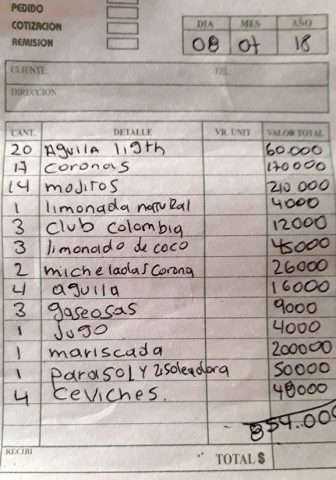 PEDIDO
COTIZACION
REMISION
DIA MES AÑO
08 07 18
CLIENTE TEL.
DIRECCION
CANT. DETALLE VR. UNIT VALOR TOTAL
20 Aguila ligth 60.000
17 coronas 170000
14 mojitos 210 000
1 limonada natural 4000
3 club colombia 12000
3 limonada de coco 45000
2 micheladas corona 26000
4 aguila 16000
3 gaseosas 9000
1 Jugo 4000
1 mariscada 200000
1 parasol y 2 soleadora 50000
4 ceviches. 48000
854.000
RECIBI TOTAL $